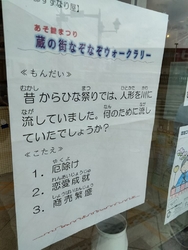 あそ雛まつり
蔵の街なぞなぞウォークラリー
≪もんだい≫
昔からひな祭りでは、人形を川に
流していました。何のために流し
ていたでしょうか?
≪こたえ≫
1. 厄除け
2. 恋愛成就
3. 商売繁盛